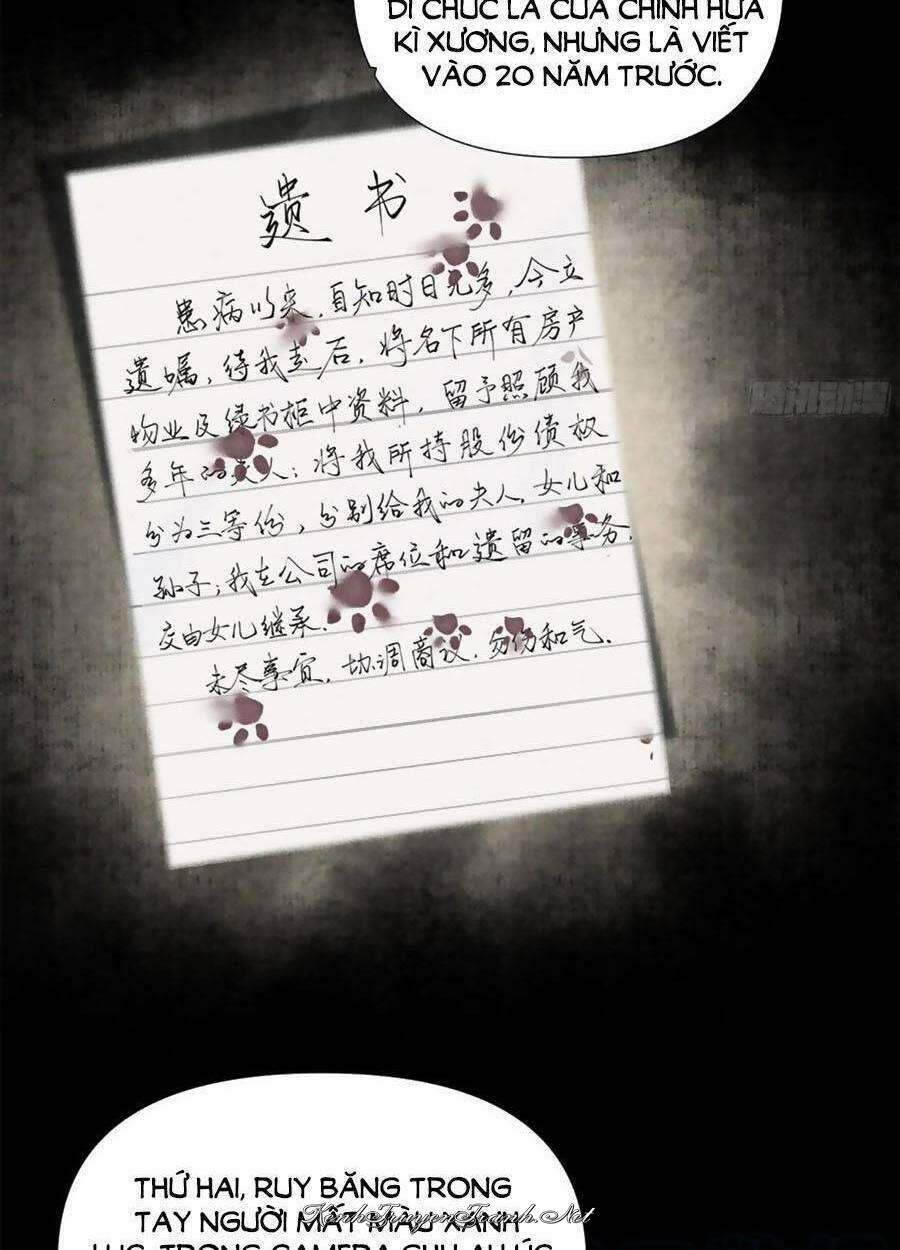 DI CHÚC LÀ CỦA CHÍNH HỨA
KÌ XƯƠNG, NHƯNG LÀ VIẾT
VÀO 20 NĂM TRƯỚC.
遗书
患病以来,自知时日无多,今立
遗嘱,待我走后,将名下所有房产
物业及绿书柜中资料,留予照顾我
多年的夫人;将我所持股份债权
分为三等份,分别给我的夫人,女儿和
孙子;我在公司的席位和遗留的事务,
交由女儿继承.
未尽事宜,协调商议.勿伤和气.
THỨ HAI, RUY BĂNG TRONG
TAY NGƯỜI MẤT MÀU XANH
KinhTruyenTranh.Net
LỤC, TRONG CAMERA